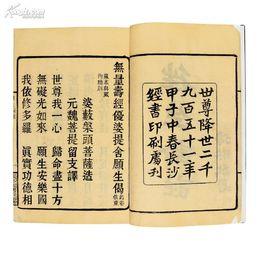 世尊降世二千
九百五十一年
甲子中春長沙
經書印刷局刊
無量壽經優婆提舍願生偈
婆藪槃頭菩薩造
元魏菩提留支譯
世尊我一心 歸命盡十方
無礙光如來 願生安樂國
我依修多羅 眞實功德相